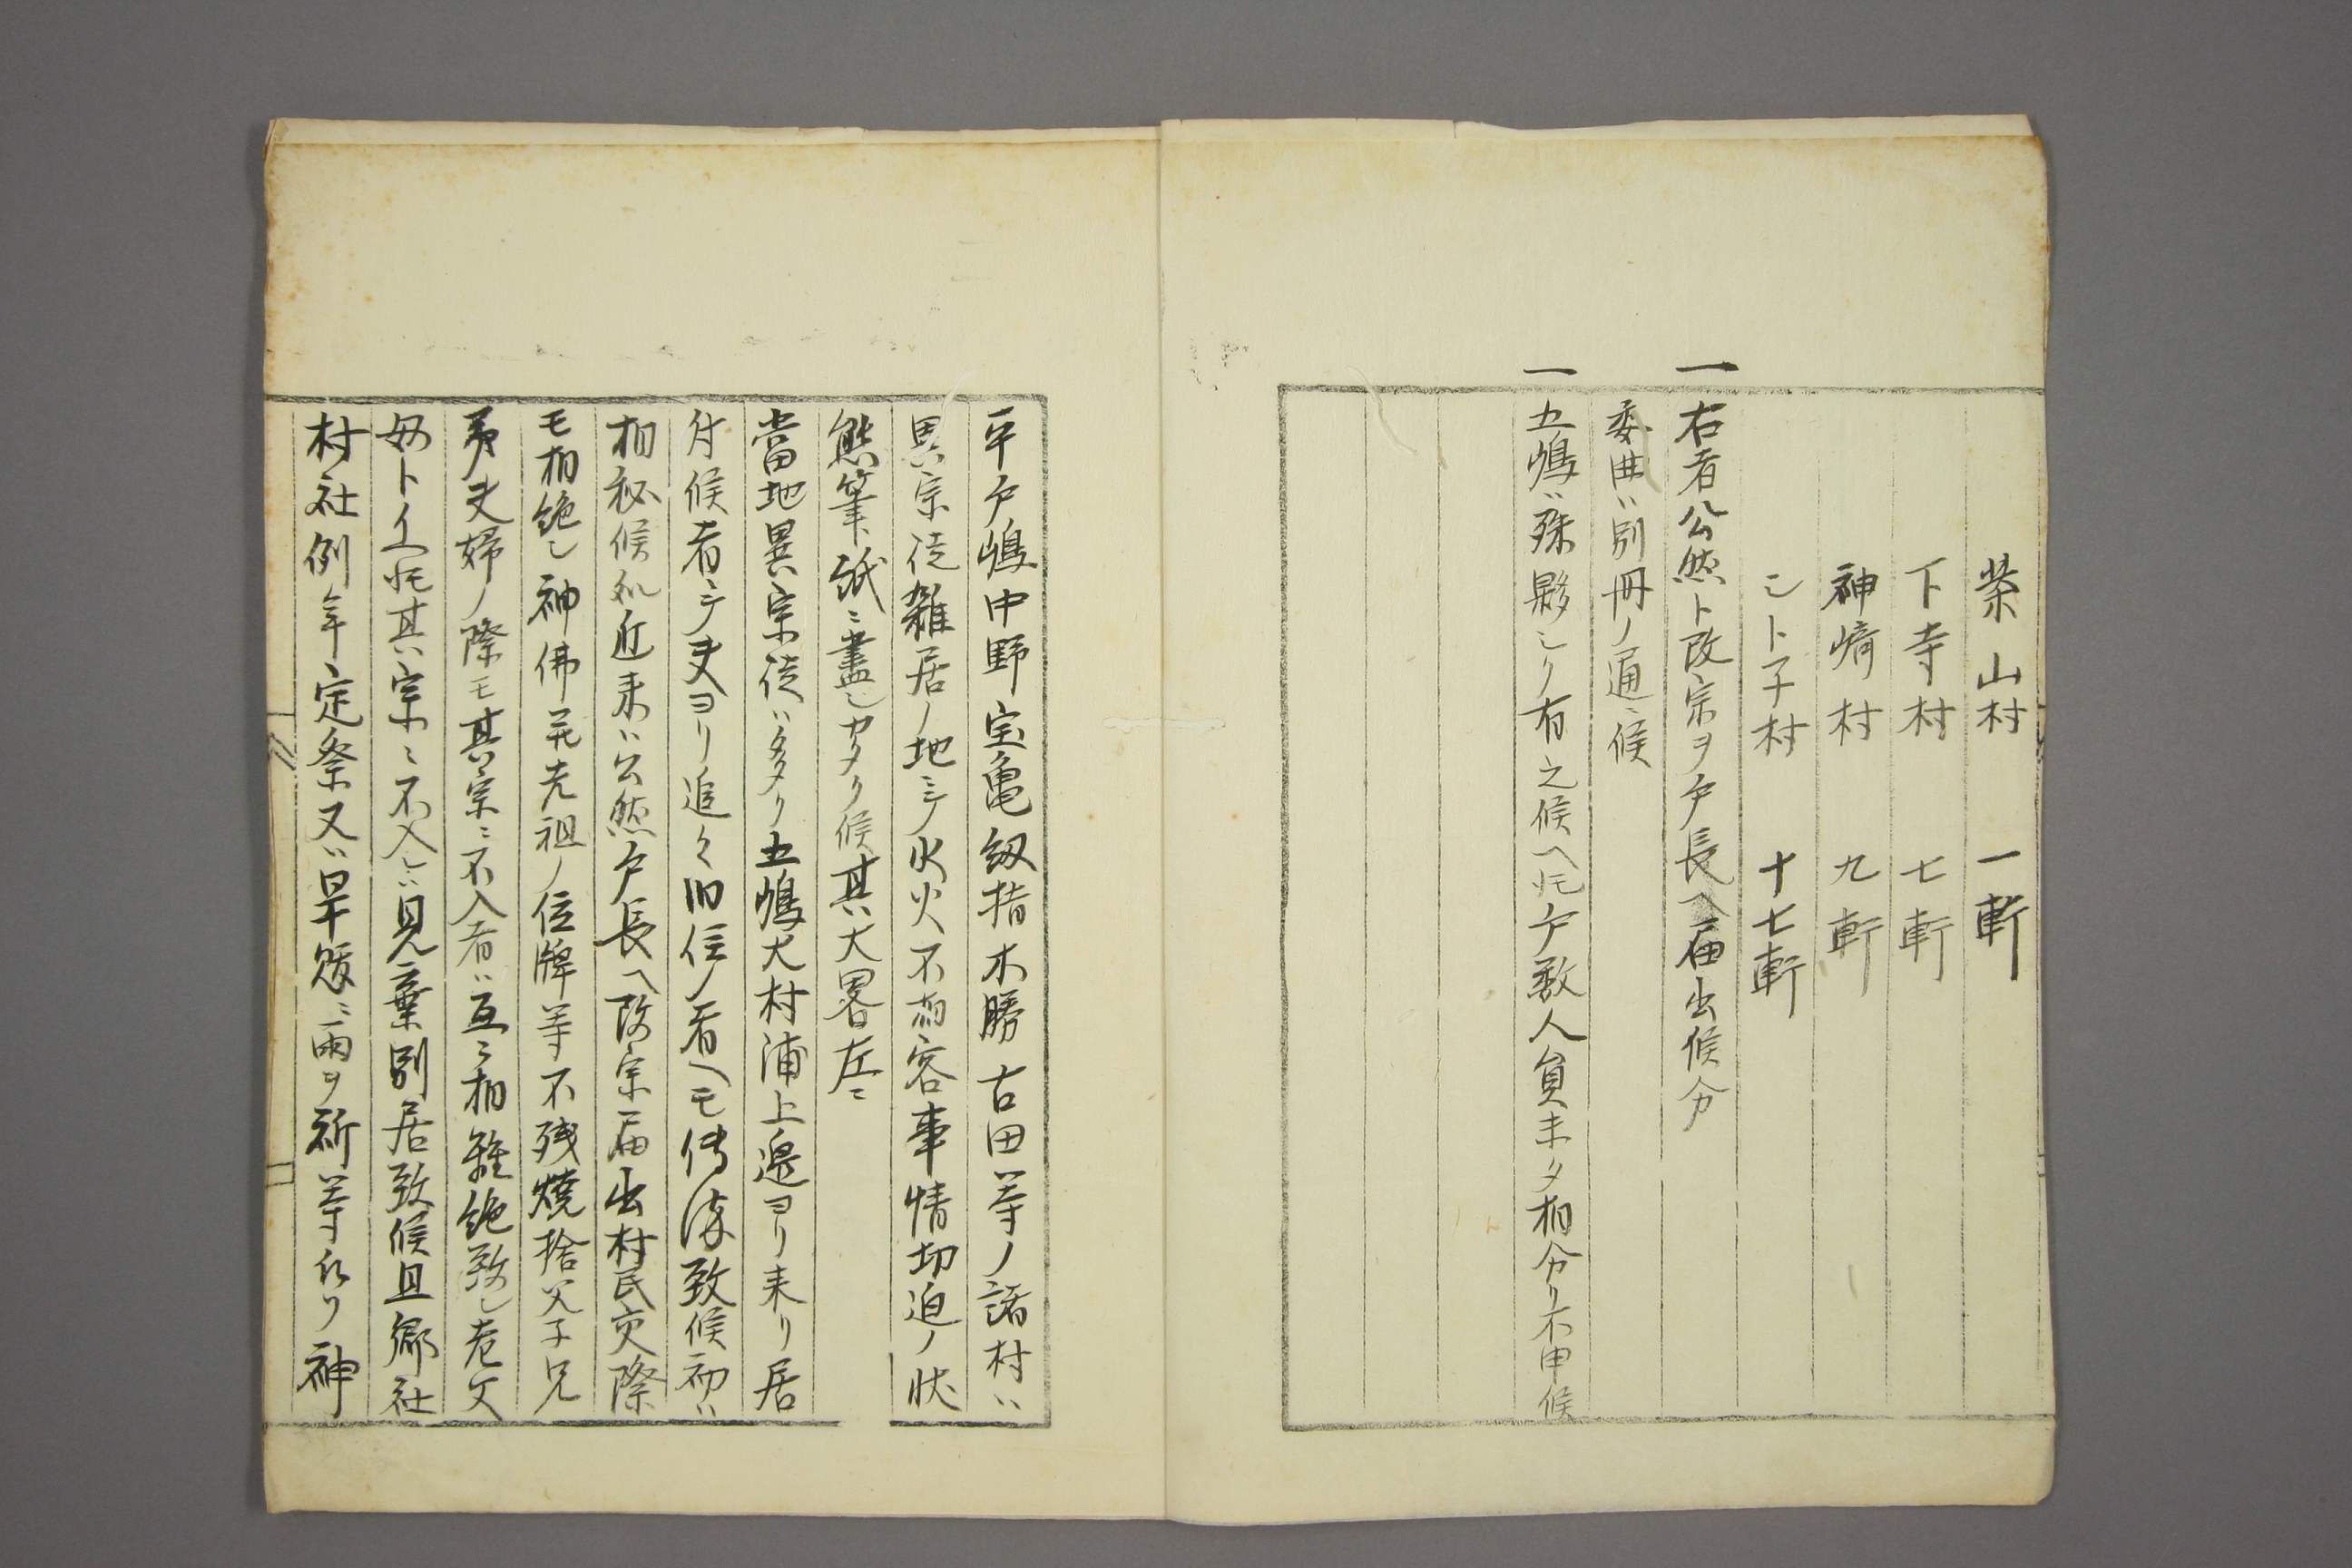 柴山村 一軒
下寺村 七軒
神﨑村 九軒
シト子村 十七軒
一 右者公然ト改宗ヲ戸長ヘ届出候分
委曲ハ別冊ノ通ニ候
一 五嶋ハ殊夥シク有之候ヘ𪜈戸数人員未タ相分リ不申候
平戸嶋中野宝亀紐指木勝古田等ノ諸村ハ
異宗徒雑居ノ地ニシテ水火不相容事情切迫ノ状
態筆紙ニ盡シカタク候其大畧左ニ
當地異宗徒ハ多分五嶋大村浦上邉ヨリ来リ居
付候者ニシテ夫ヨリ追々旧住ノ者ヘモ傳染致候初ハ
相秘候処近来ハ公然戸長ヘ改宗届出村民交際
モ相絶シ神佛并先祖ノ位牌等不残焼捨父子兄
弟夫婦ノ際モ其宗ニ不入者ハ互ニ相離絶致シ老父
母ト仝𪜈其宗ニ不入レハ見棄別居致候且郷社
村社例年定祭又ハ旱魃ニ雨ヲ祈等祈リ神